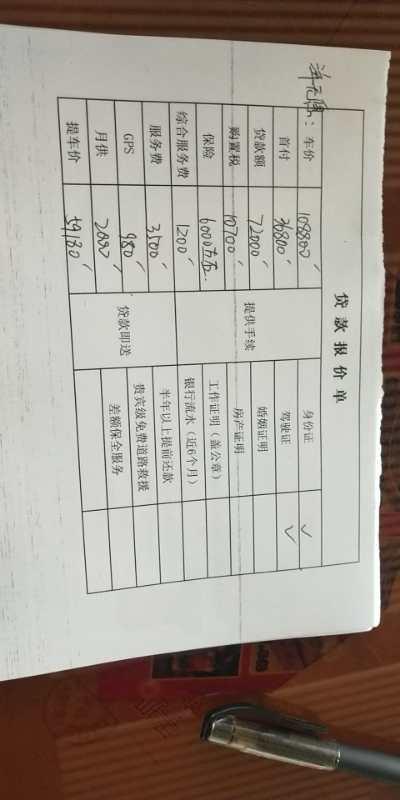 贷款报价单
车价 108800 提供手续 身份证 ✓
首付 36800 驾驶证 ✓
贷款额 72000 婚姻证明
购置税 10700 房产证明
保险 6000左右 工作证明（盖公章）
综合服务费 1200 银行流水（近6个月）
服务费 3500 贷款即送 半年以上提前还款
GPS 980 贵宾级免费道路救援
月供 2000 差额保全服务
提车价 59180